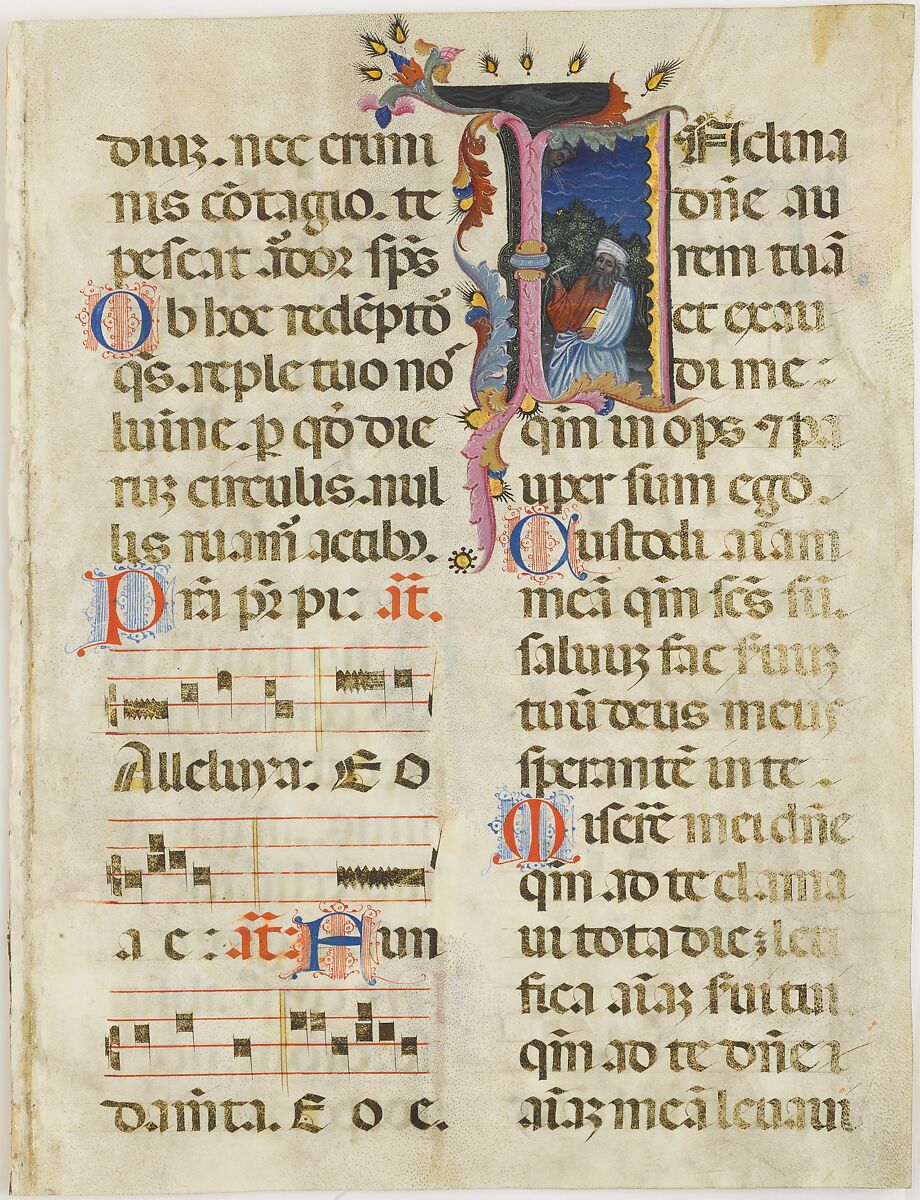 duz. nec crimi
nis cōtagio. te
pescat ādor sp̄s
Ob hoc redēptō
q̄s. reple tuo nō
lumine. p qd̄ die
ruz circulis. nul
lis ruam̄ actibꝫ.
Prā pr̄ pi: ā̄t.
Alleluya: E O
a e: ā̄t: Fun
dam̄ta. E o e.
INclina
dn̄e au
rem tuā
et exau
di me:
qm̄ inops ⁊ pa
uper sum ego.
Custodi aīam
meā qm̄ scs̄ sū.
saluuz fac seruuz
tuū deus meus
sperantē in te.
Miserē mei dn̄e
qm̄ ad te clama
ui tota die: leti
fica aīaz serui tui
qm̄ ad te dn̄e
aīaz meā leuaui